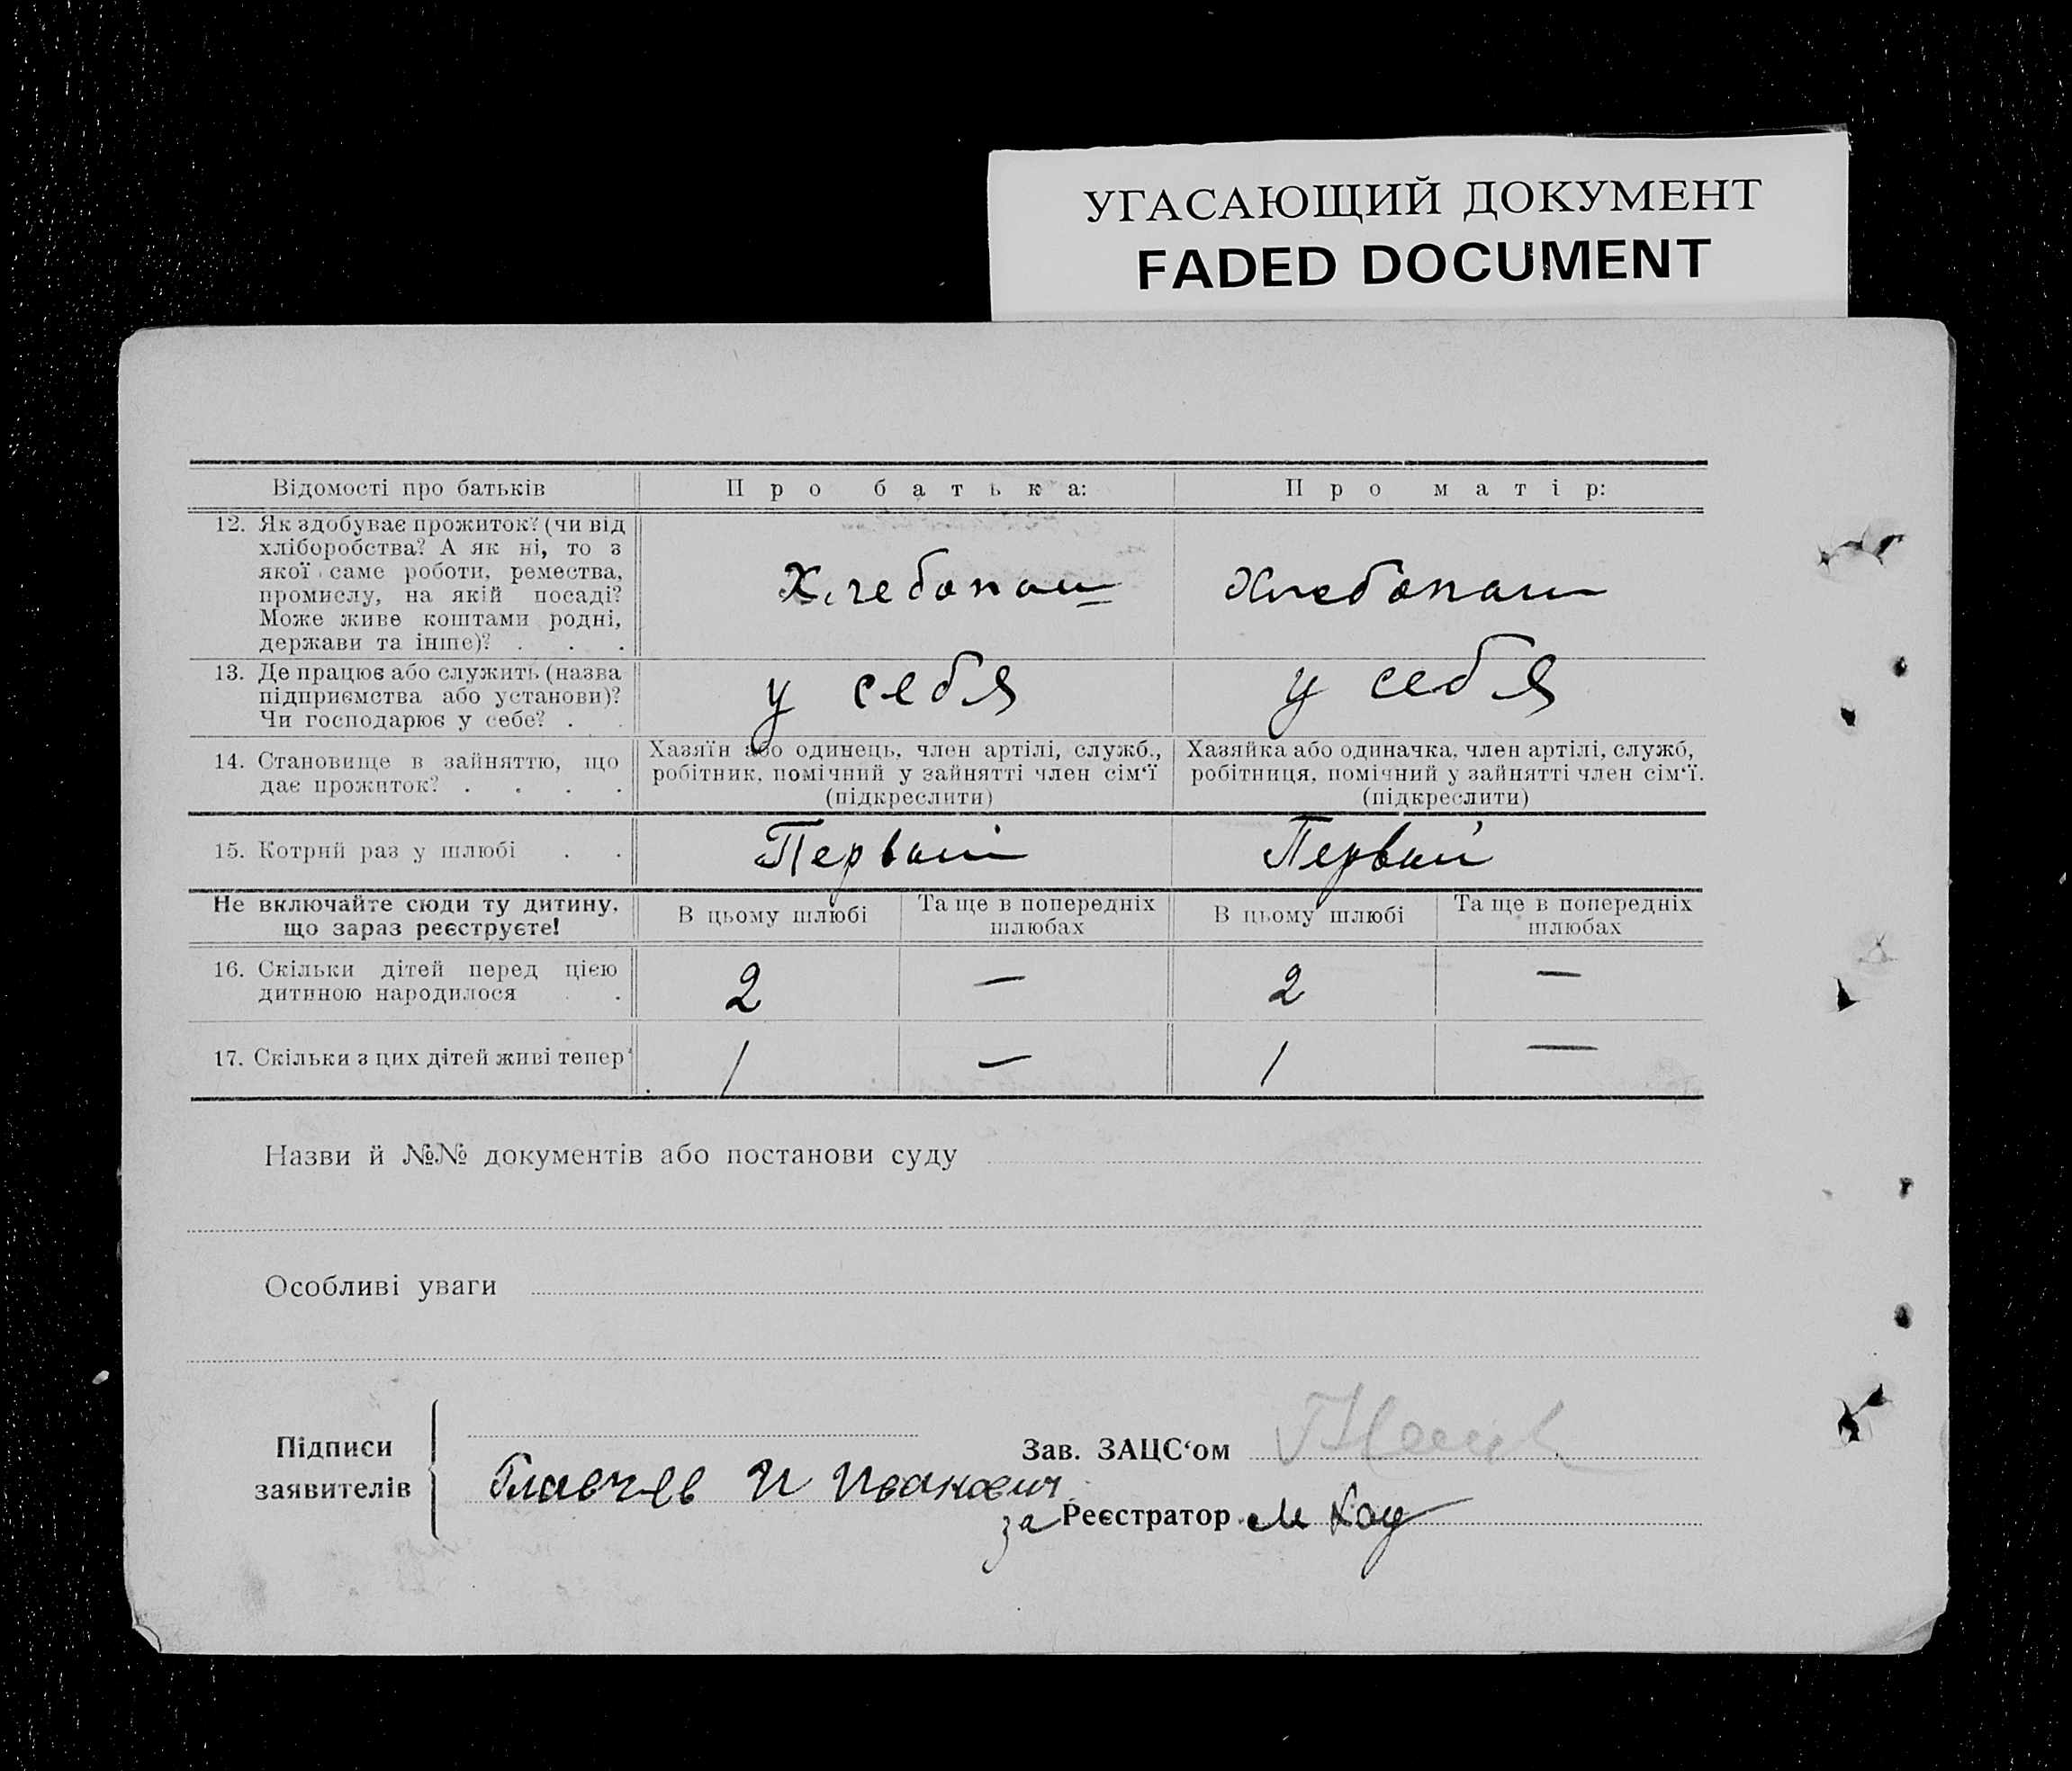 УГАСАЮЩИЙ ДОКУМЕНТ
FADED DOCUMENT
Відомості про батьків Про батька: Про матір:
12. Як здобуває прожиток? (чи від
хліборобства? А як ні, то з
якої саме роботи, ремества,
промислу, на якій посаді?
Може живе коштами родні,
держави та інше)? . . .
Хлебопаш Хлебопаш
13. Де працює або служить (назва
підприємства або установи)?
Чи господарює у себе? . .
у себя у себя
14. Становище в зайняттю, що
дає прожиток? . . . .
Хазяїн або одинець, член артілі, служб.,
робітник, помічний у зайнятті член сім‘ї
(підкреслити)
Хазяйка або одиначка, член артілі, служб,
робітниця, помічний у зайнятті член сім‘ї.
(підкреслити)
15. Котрий раз у шлюбі . . Первый Первый
Не включайте сюди ту дитину,
що зараз реєструєте!
В цьому шлюбі Та ще в попередніх
шлюбах
В цьому шлюбі Та ще в попередніх
шлюбах
16. Скільки дітей перед цією
дитиною народилося . .
2 — 2 —
17. Скільки з цих дітей живі тепер 1 — 1 —
Назви й №№ документів або постанови суду
Особливі уваги
Підписи
заявителів
Главчев И Иванович
Зав. ЗАЦС‘ом
за Реєстратор М